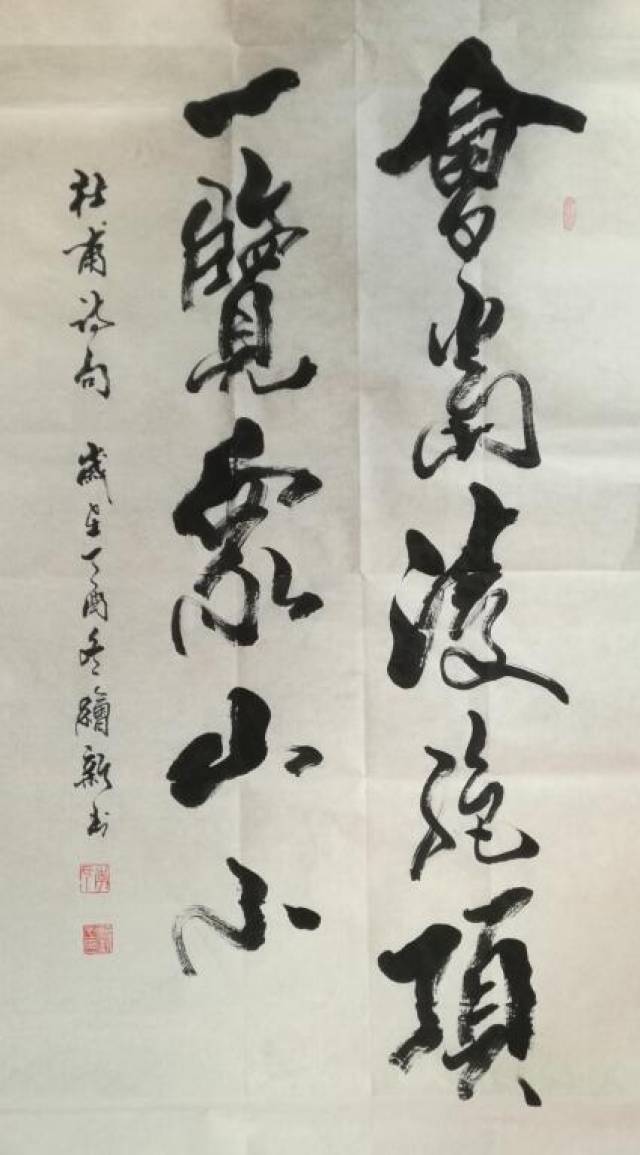 會當凌絕頂
一覽眾山小
杜甫詩句 歲在丁酉冬繪新书